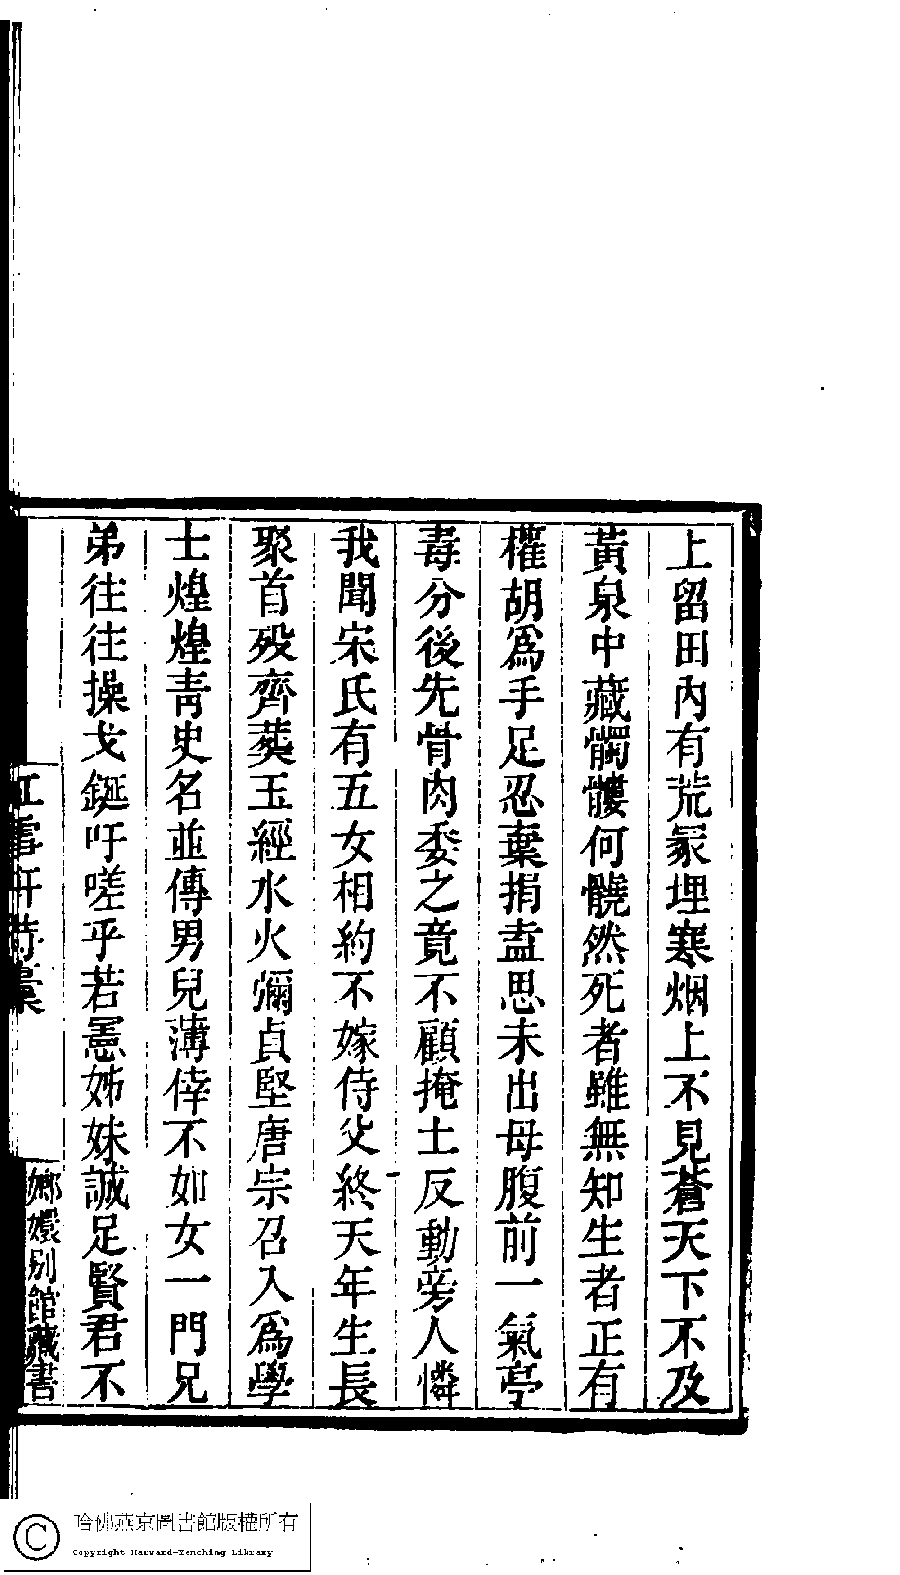 上留田內有荒冢埋寒烟上不見蒼天下不及
黃泉中藏髑髏何髐然死者雖無知生者正有
權胡爲手足忍棄捐盍思未出母腹前一氣亭
毒分後先骨肉委之竟不顧掩土反動旁人憐
我聞宋氏有五女相約不嫁侍父終天年生長
聚首歿齊葬玉經水火彌貞堅唐宗召入爲學
士煌煌靑史名並傳男兒薄倖不如女一門兄
弟往往操戈鋋吁嗟乎若憲姊妹誠足賢君不
紅雪軒詩稾
嫏嬛別館藏書
哈佛燕京圖書館版權所有
Copyright Harvard-Yenching Library